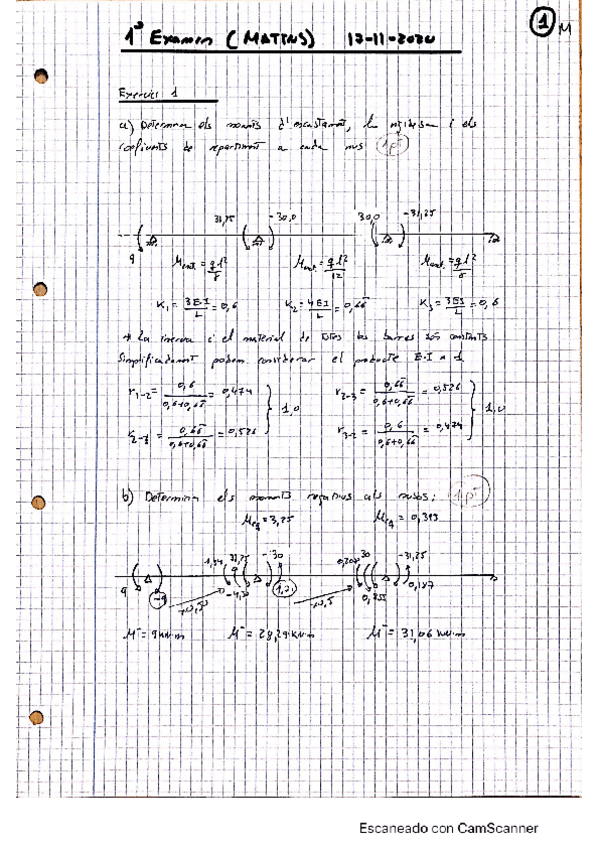 1º Examen (MATINS) 12-11-2020
1 M
Exercici 1
a) Determina els moments d'encastament, la rigidesa i els
coeficients de repartiment a cada nus 1pt
-30,0 30,0 -31,25
9
M = q l²/8 M = q l²/12 M = q l²/8
K₁ = 3EI/L = 0,6 K₂ = 4EI/L = 0,66 K₃ = 3EI/L = 0,6
* La inercia i el material de totes les barres són constants
Simplificadament podem considerar el producte E·I = 1
r₁₋₂ = 0,6/0,6+0,66 = 0,474 r₂₋₃ = 0,66/0,6+0,66 = 0,526
1,0 1,0
= 0,66/0,6+0,66 = 0,526 r₃₋₂ = 0,6/0,6+0,66 = 0,474
b) Determina els moments negatius als nusos: 1pt
M = 3,25 M = 0,313
31,25 -30 30 -31,25
9 -9 0,187
M⁻ = 9 kN·m M⁻ = 28,29 kN·m M⁻ = 31,06 kN·m
Escaneado con CamScanner